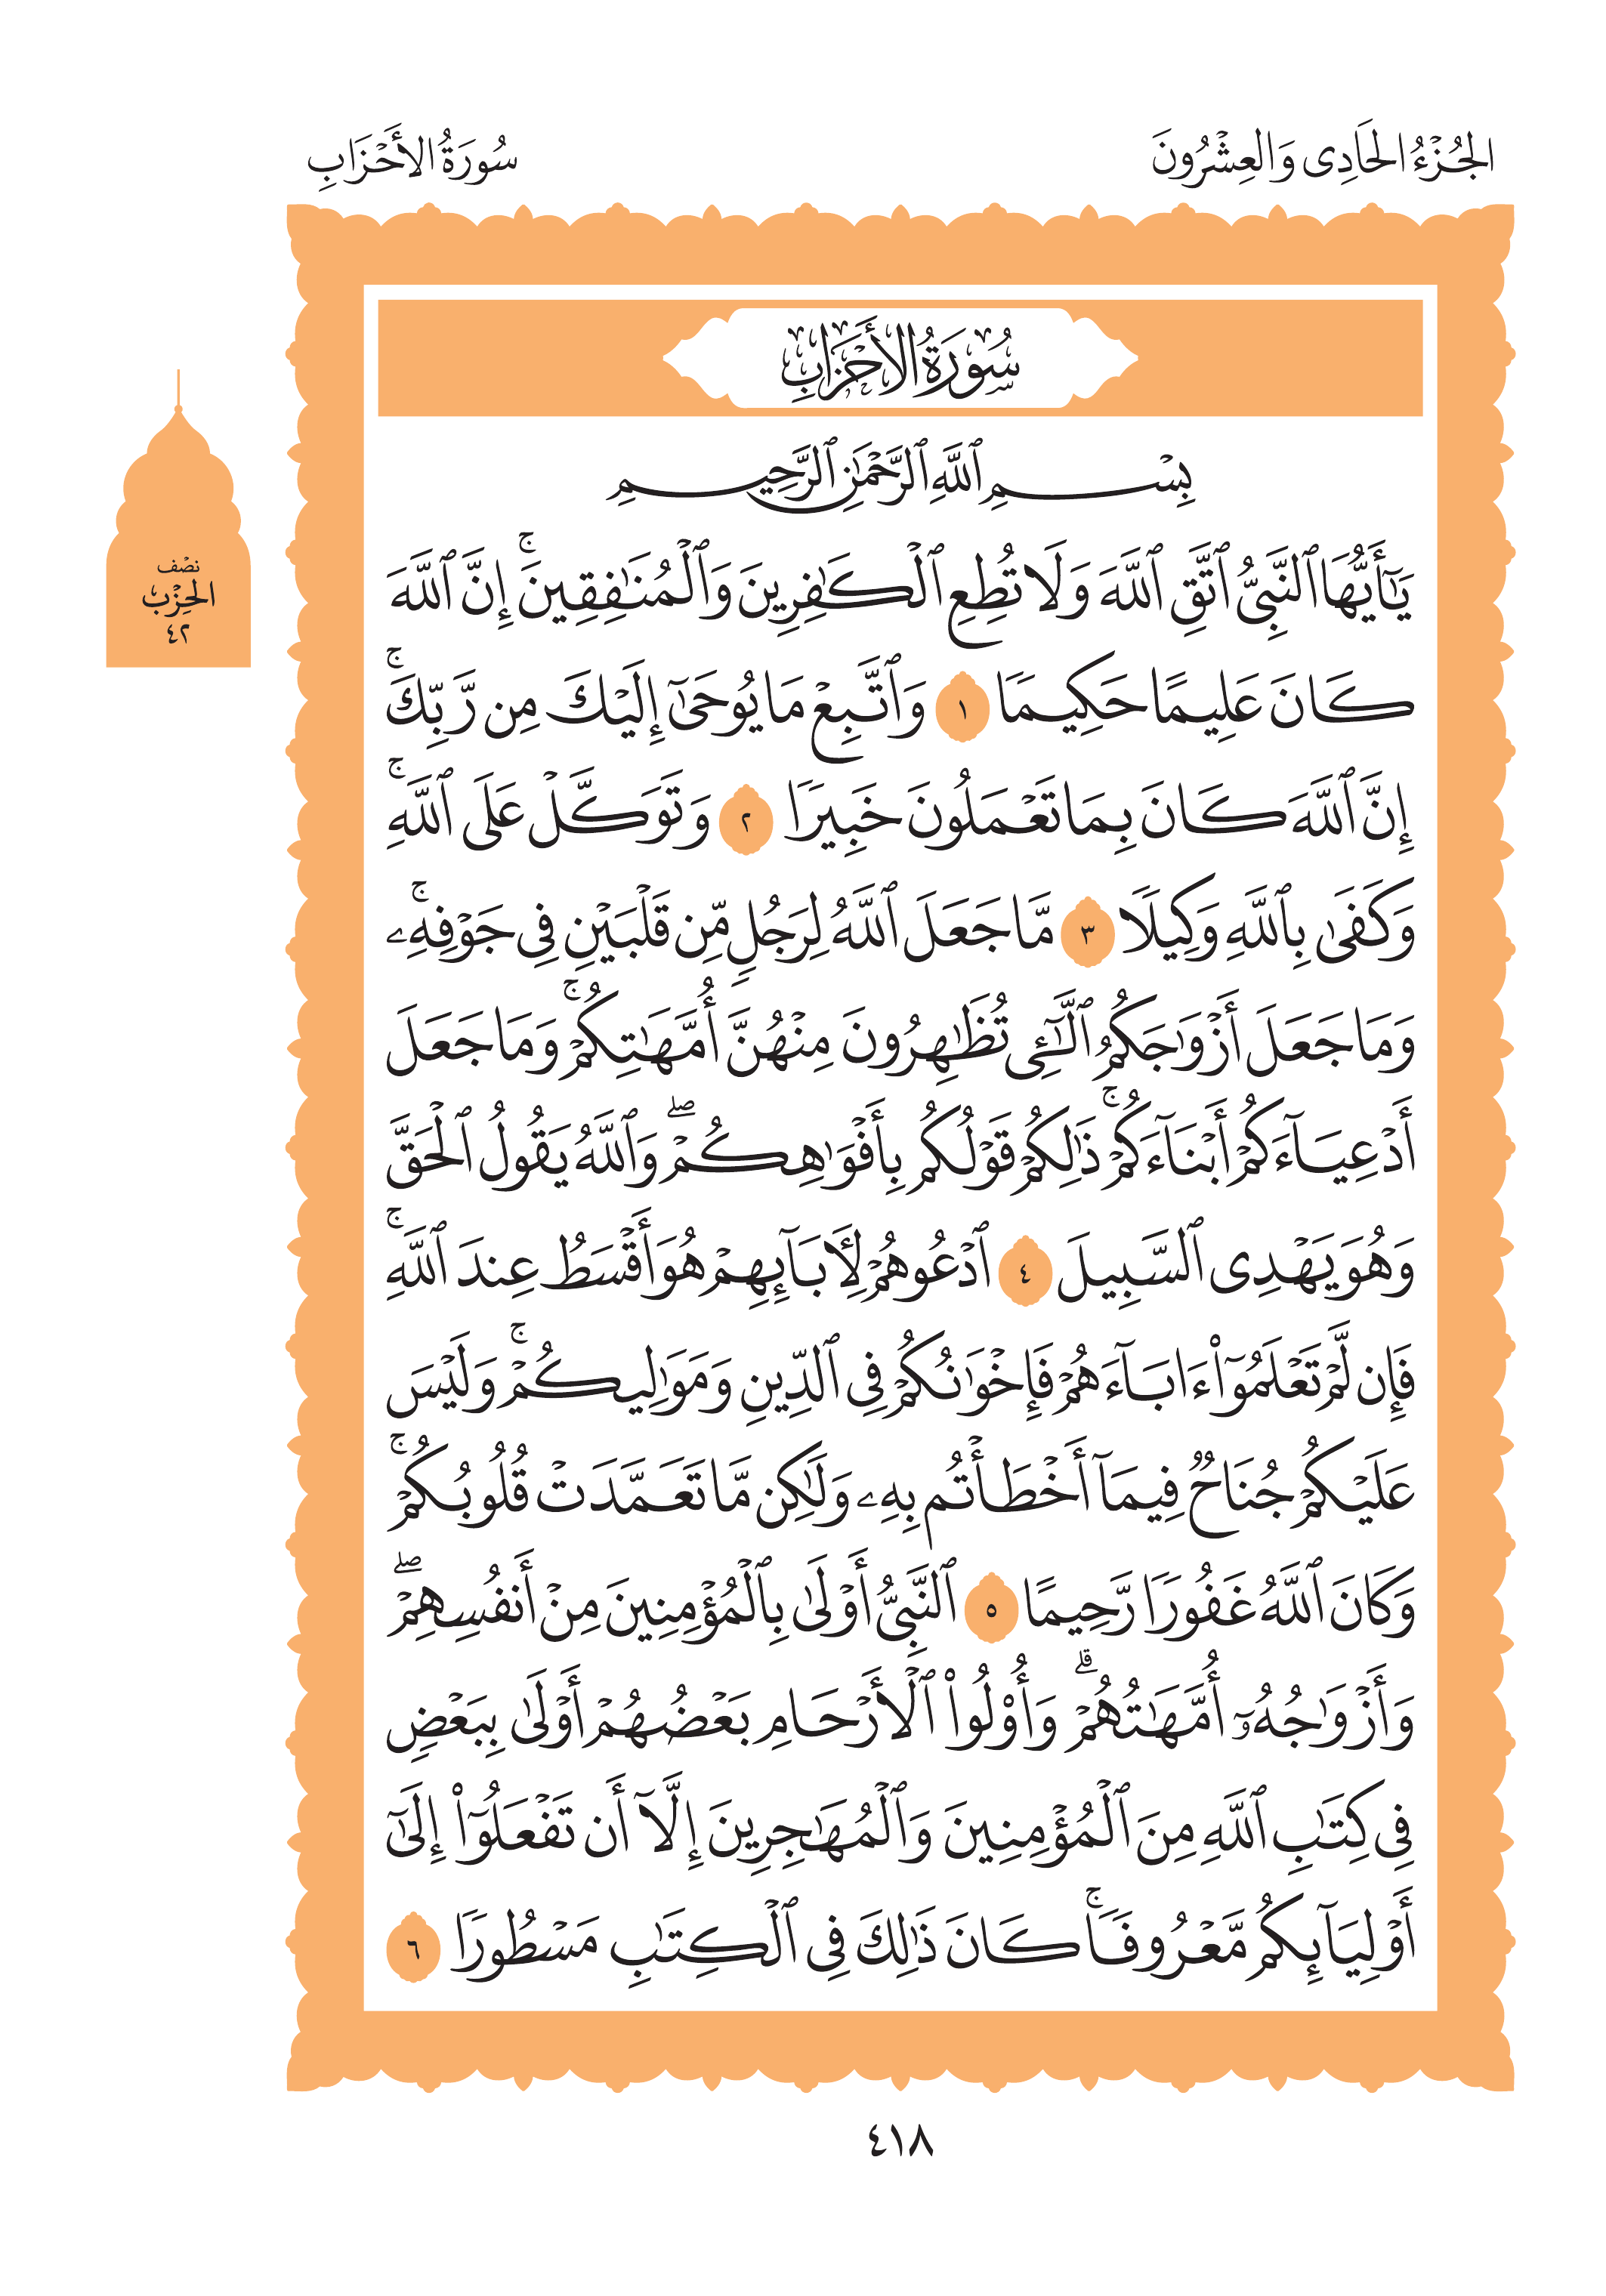 الجُزْءُ الحَادِى وَالعِشْرُونَ
سُورَةُ الأَحْزَابِ
سُورَةُ الأَحْزَابِ
بِسْمِ ٱللَّهِ ٱلرَّحْمَٰنِ ٱلرَّحِيمِ
نصْف
الحِزْب
٤٢
يَٰٓأَيُّهَا ٱلنَّبِيُّ ٱتَّقِ ٱللَّهَ وَلَا تُطِعِ ٱلْكَٰفِرِينَ وَٱلْمُنَٰفِقِينَۚ إِنَّ ٱللَّهَ
كَانَ عَلِيمًا حَكِيمًا ١ وَٱتَّبِعْ مَا يُوحَىٰٓ إِلَيْكَ مِن رَّبِّكَۚ
إِنَّ ٱللَّهَ كَانَ بِمَا تَعْمَلُونَ خَبِيرًا ٢ وَتَوَكَّلْ عَلَى ٱللَّهِۚ
وَكَفَىٰ بِٱللَّهِ وَكِيلًا ٣ مَّا جَعَلَ ٱللَّهُ لِرَجُلٍ مِّن قَلْبَيْنِ فِى جَوْفِهِۦۚ
وَمَا جَعَلَ أَزْوَٰجَكُمُ ٱلَّٰٓئِى تُظَٰهِرُونَ مِنْهُنَّ أُمَّهَٰتِكُمْۚ وَمَا جَعَلَ
أَدْعِيَآءَكُمْ أَبْنَآءَكُمْۚ ذَٰلِكُمْ قَوْلُكُم بِأَفْوَٰهِكُمْۖ وَٱللَّهُ يَقُولُ ٱلْحَقَّ
وَهُوَ يَهْدِى ٱلسَّبِيلَ ٤ ٱدْعُوهُمْ لِأَبَآئِهِمْ هُوَ أَقْسَطُ عِندَ ٱللَّهِۚ
فَإِن لَّمْ تَعْلَمُوٓا۟ ءَابَآءَهُمْ فَإِخْوَٰنُكُمْ فِى ٱلدِّينِ وَمَوَٰلِيكُمْۚ وَلَيْسَ
عَلَيْكُمْ جُنَاحٌ فِيمَآ أَخْطَأْتُم بِهِۦ وَلَٰكِن مَّا تَعَمَّدَتْ قُلُوبُكُمْۚ
وَكَانَ ٱللَّهُ غَفُورًا رَّحِيمًا ٥ ٱلنَّبِيُّ أَوْلَىٰ بِٱلْمُؤْمِنِينَ مِنْ أَنفُسِهِمْۖ
وَأَزْوَٰجُهُۥٓ أُمَّهَٰتُهُمْۗ وَأُو۟لُوا۟ ٱلْأَرْحَامِ بَعْضُهُمْ أَوْلَىٰ بِبَعْضٍ
فِى كِتَٰبِ ٱللَّهِ مِنَ ٱلْمُؤْمِنِينَ وَٱلْمُهَٰجِرِينَ إِلَّآ أَن تَفْعَلُوٓا۟ إِلَىٰٓ
أَوْلِيَآئِكُم مَّعْرُوفًاۚ كَانَ ذَٰلِكَ فِى ٱلْكِتَٰبِ مَسْطُورًا ٦
٤١٨